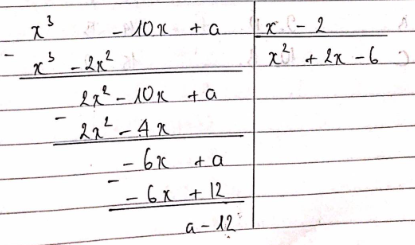 x³ - 10x + a | x - 2
- x³ - 2x² | x² + 2x - 6
2x² - 10x + a
- 2x² - 4x
- 6x + a
- - 6x + 12
a - 12